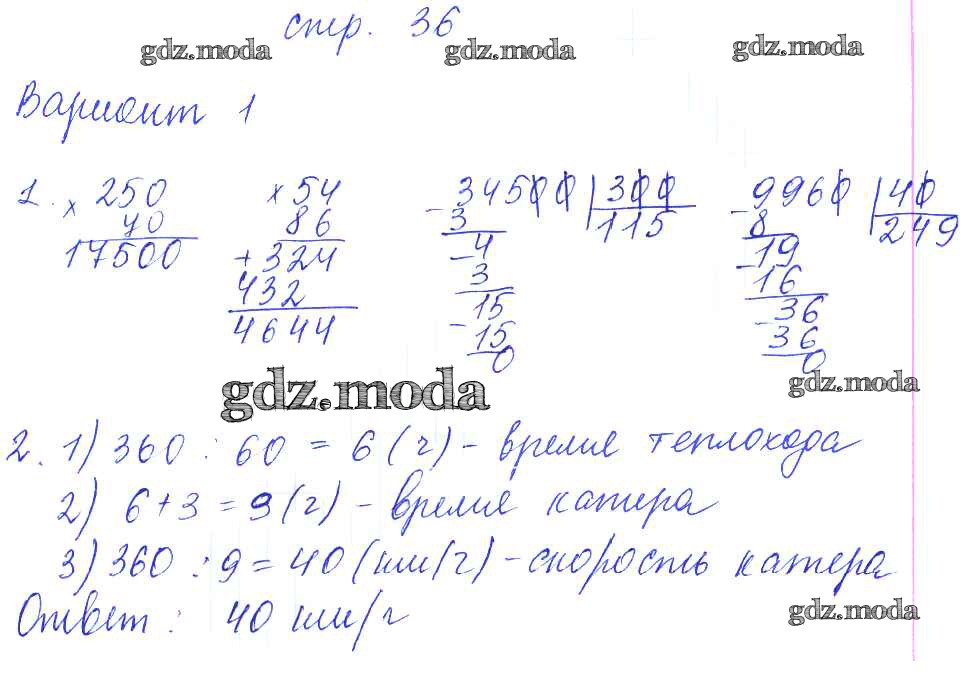 стр. 36
gdz.moda gdz.moda gdz.moda
Вариант 1
1. × 250 × 54 - 34500 | 300 - 9960 | 40
70 86 3 115 8 249
17500 + 324 - 4 - 19
432 3 16
4644 15 - 36
- 15 36
0 0
gdz.moda gdz.moda
2. 1) 360 : 60 = 6 (ч) - время теплохода
2) 6 + 3 = 9 (ч) - время катера
3) 360 : 9 = 40 (км/ч) - скорость катера
Ответ: 40 км/ч
gdz.moda